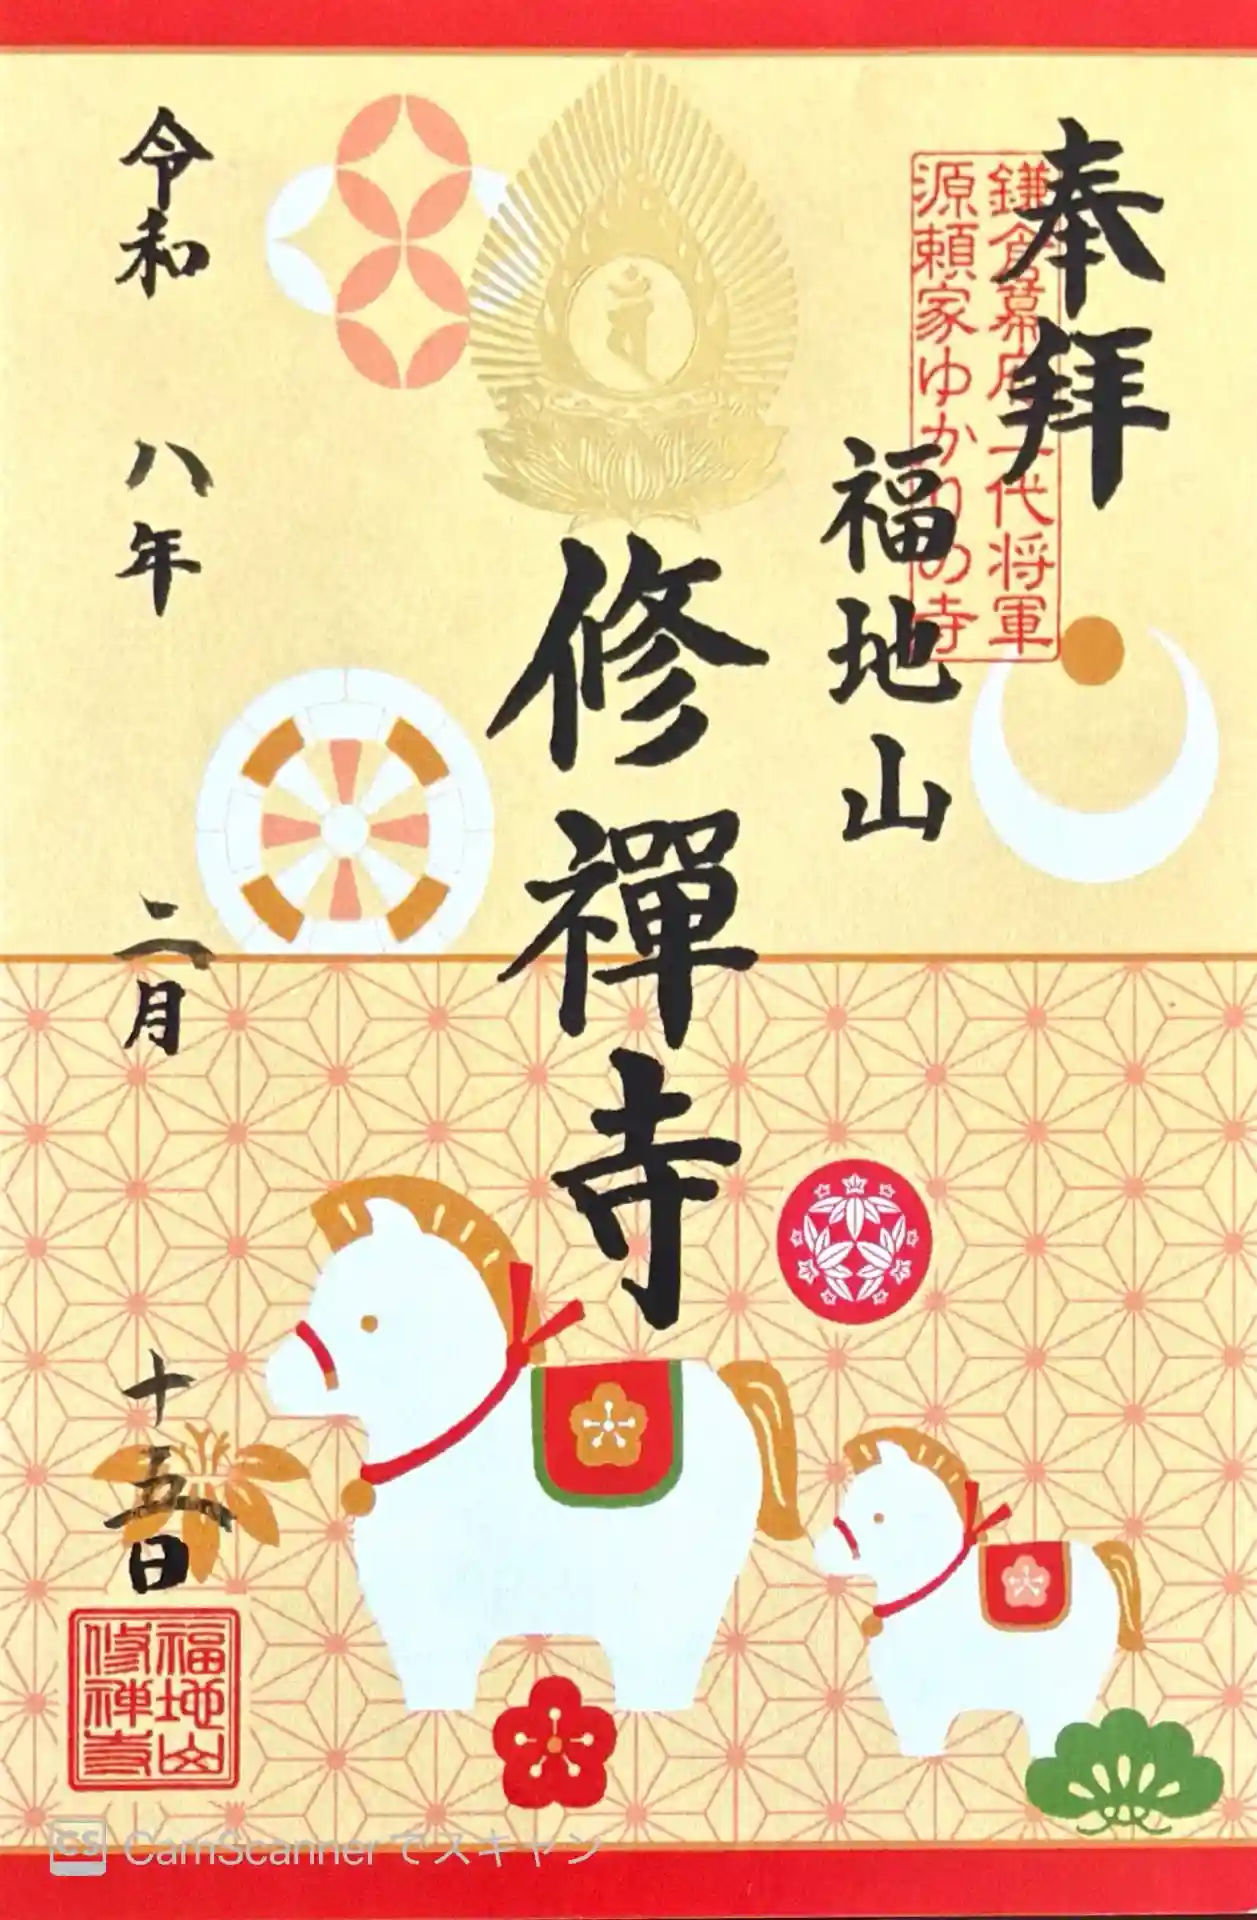 奉拝
鎌倉幕府二代将軍
源頼家ゆかりの寺
福地山
修禪寺
令和八年二月十五日
福地山
修禅寺
CS CamScannerでスキャン